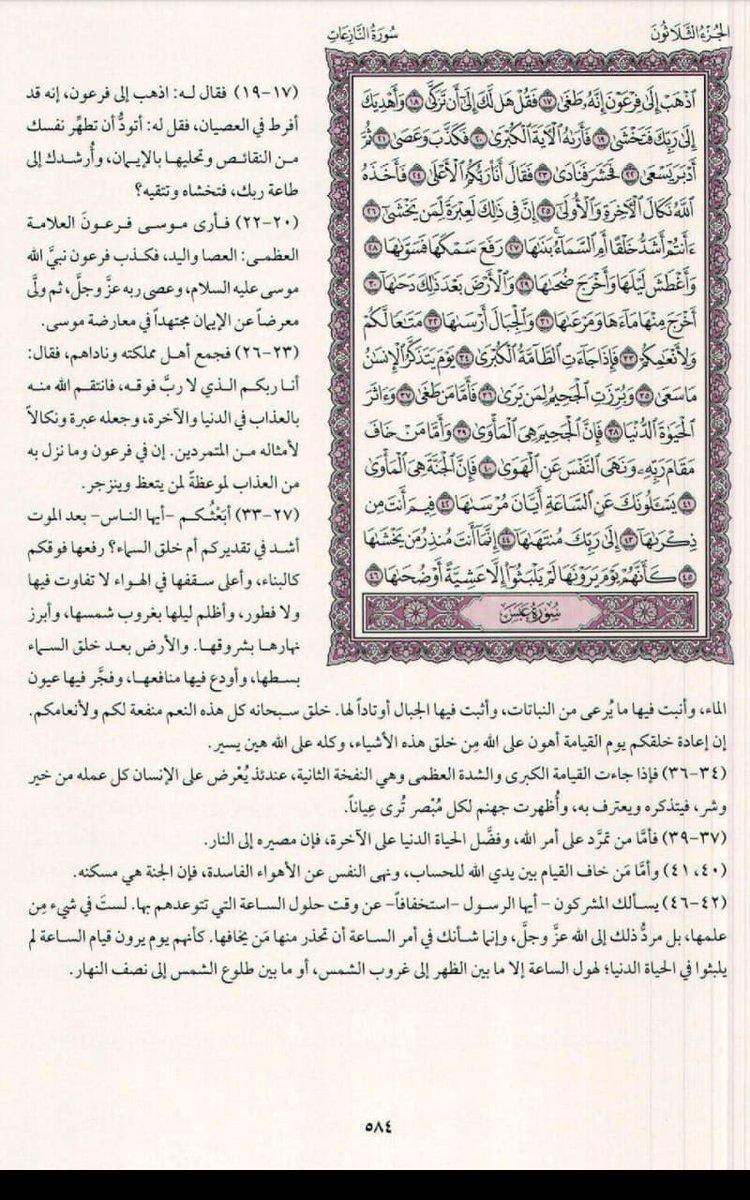 الجُزءُ الثَّلَاثُونَ
سُورَةُ النَّازِعَاتِ
ٱذۡهَبۡ إِلَىٰ فِرۡعَوۡنَ إِنَّهُۥ طَغَىٰ ١٧ فَقُلۡ هَل لَّكَ إِلَىٰٓ أَن تَزَكَّىٰ ١٨ وَأَهۡدِيَكَ
إِلَىٰ رَبِّكَ فَتَخۡشَىٰ ١٩ فَأَرَىٰهُ ٱلۡأٓيَةَ ٱلۡكُبۡرَىٰ ٢٠ فَكَذَّبَ وَعَصَىٰ ٢١ ثُمَّ
أَدۡبَرَ يَسۡعَىٰ ٢٢ فَحَشَرَ فَنَادَىٰ ٢٣ فَقَالَ أَنَا۠ رَبُّكُمُ ٱلۡأَعۡلَىٰ ٢٤ فَأَخَذَهُ
ٱللَّهُ نَكَالَ ٱلۡأٓخِرَةِ وَٱلۡأُولَىٰٓ ٢٥ إِنَّ فِي ذَٰلِكَ لَعِبۡرَةٗ لِّمَن يَخۡشَىٰٓ ٢٦
ءَأَنتُمۡ أَشَدُّ خَلۡقًا أَمِ ٱلسَّمَآءُۚ بَنَىٰهَا ٢٧ رَفَعَ سَمۡكَهَا فَسَوَّىٰهَا ٢٨
وَأَغۡطَشَ لَيۡلَهَا وَأَخۡرَجَ ضُحَىٰهَا ٢٩ وَٱلۡأَرۡضَ بَعۡدَ ذَٰلِكَ دَحَىٰهَآ ٣٠
أَخۡرَجَ مِنۡهَا مَآءَهَا وَمَرۡعَىٰهَا ٣١ وَٱلۡجِبَالَ أَرۡسَىٰهَا ٣٢ مَتَٰعٗا لَّكُمۡ
وَلِأَنۡعَٰمِكُمۡ ٣٣ فَإِذَا جَآءَتِ ٱلطَّآمَّةُ ٱلۡكُبۡرَىٰ ٣٤ يَوۡمَ يَتَذَكَّرُ ٱلۡإِنسَٰنُ
مَا سَعَىٰ ٣٥ وَبُرِّزَتِ ٱلۡجَحِيمُ لِمَن يَرَىٰ ٣٦ فَأَمَّا مَن طَغَىٰ ٣٧ وَءَاثَرَ
ٱلۡحَيَوٰةَ ٱلدُّنۡيَا ٣٨ فَإِنَّ ٱلۡجَحِيمَ هِيَ ٱلۡمَأۡوَىٰ ٣٩ وَأَمَّا مَنۡ خَافَ
مَقَامَ رَبِّهِۦ وَنَهَى ٱلنَّفۡسَ عَنِ ٱلۡهَوَىٰ ٤٠ فَإِنَّ ٱلۡجَنَّةَ هِيَ ٱلۡمَأۡوَىٰ
٤١ يَسۡـَٔلُونَكَ عَنِ ٱلسَّاعَةِ أَيَّانَ مُرۡسَىٰهَا ٤٢ فِيمَ أَنتَ مِن
ذِكۡرَىٰهَآ ٤٣ إِلَىٰ رَبِّكَ مُنتَهَىٰهَآ ٤٤ إِنَّمَآ أَنتَ مُنذِرُ مَن يَخۡشَىٰهَا
٤٥ كَأَنَّهُمۡ يَوۡمَ يَرَوۡنَهَا لَمۡ يَلۡبَثُوٓاْ إِلَّا عَشِيَّةً أَوۡ ضُحَىٰهَا ٤٦
سُورَةُ عَبَسَ
(١٧-١٩) فقال لـه: اذهب إلى فرعون، إنه قد
أفرط في العصيان، فقل له: أتودُّ أن تطهِّر نفسك
من النقائص وتحليها بالإيمان، وأُرشدك إلى
طاعة ربك، فتخشاه وتتقيه؟
(٢٠-٢٢) فأرى موسى فرعونَ العلامة
العظمى: العصا واليد، فكذب فرعون نبيَّ الله
موسى عليه السلام، وعصى ربه عزَّ وجلَّ، ثم ولَّى
معرضاً عن الإيمان مجتهداً في معارضة موسى.
(٢٣-٢٦) فجمع أهل مملكته وناداهم، فقال:
أنا ربكم الذي لا ربَّ فوقه، فانتقم الله منه
بالعذاب في الدنيا والآخرة، وجعله عبرة ونكالاً
لأمثاله من المتمردين. إن في فرعون وما نزل به
من العذاب لموعظةً لمن يتعظ وينزجر.
(٢٧-٣٣) أبَعْثُكم -أيها الناس- بعد الموت
أشد في تقديركم أم خلق السماء؟ رفعها فوقكم
كالبناء، وأعلى سقفها في الهواء لا تفاوت فيها
ولا فطور، وأظلم ليلها بغروب شمسها، وأبرز
نهارها بشروقها. والأرض بعد خلق السماء
بسطها، وأودع فيها منافعها، وفجَّر فيها عيون
الماء، وأنبت فيها ما يُرعى من النباتات، وأثبت فيها الجبال أوتاداً لها. خلق سبحانه كل هذه النعم منفعة لكم ولأنعامكم.
إن إعادة خلقكم يوم القيامة أهون على الله مِن خلق هذه الأشياء، وكله على الله هين يسير.
(٣٤-٣٦) فإذا جاءت القيامة الكبرى والشدة العظمى وهي النفخة الثانية، عندئذ يُعْرض على الإنسان كل عمله من خير
وشر، فيتذكره ويعترف به، وأُظهرت جهنم لكل مُبْصر تُرى عِياناً.
(٣٧-٣٩) فأمَّا من تمرَّد على أمر الله، وفضَّل الحياة الدنيا على الآخرة، فإن مصيره إلى النار.
(٤٠، ٤١) وأمَّا مَن خاف القيام بين يدي الله للحساب، ونهى النفس عن الأهواء الفاسدة، فإن الجنة هي مسكنه.
(٤٢-٤٦) يسألك المشركون -أيها الرسول -استخفافاً- عن وقت حلول الساعة التي تتوعدهم بها. لستَ في شيء مِن
علمها، بل مردُّ ذلك إلى الله عزَّ وجلَّ، وإنما شأنك في أمر الساعة أن تحذر منها مَن يخافها. كأنهم يوم يرون قيام الساعة لم
يلبثوا في الحياة الدنيا؛ لهول الساعة إلا ما بين الظهر إلى غروب الشمس، أو ما بين طلوع الشمس إلى نصف النهار.
٥٨٤